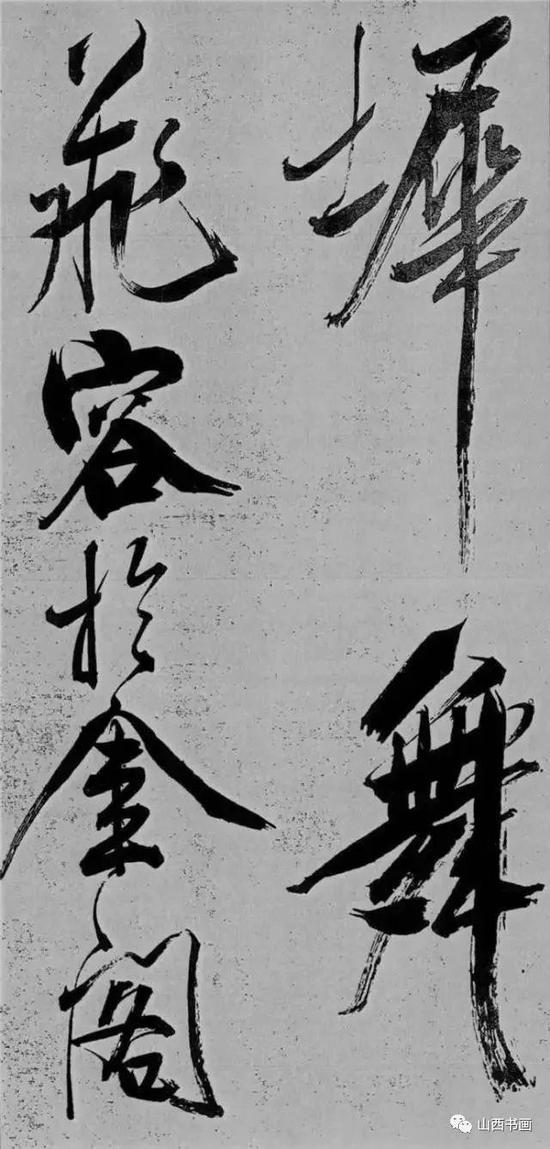 墀舞
飛容於金閣
山西书画